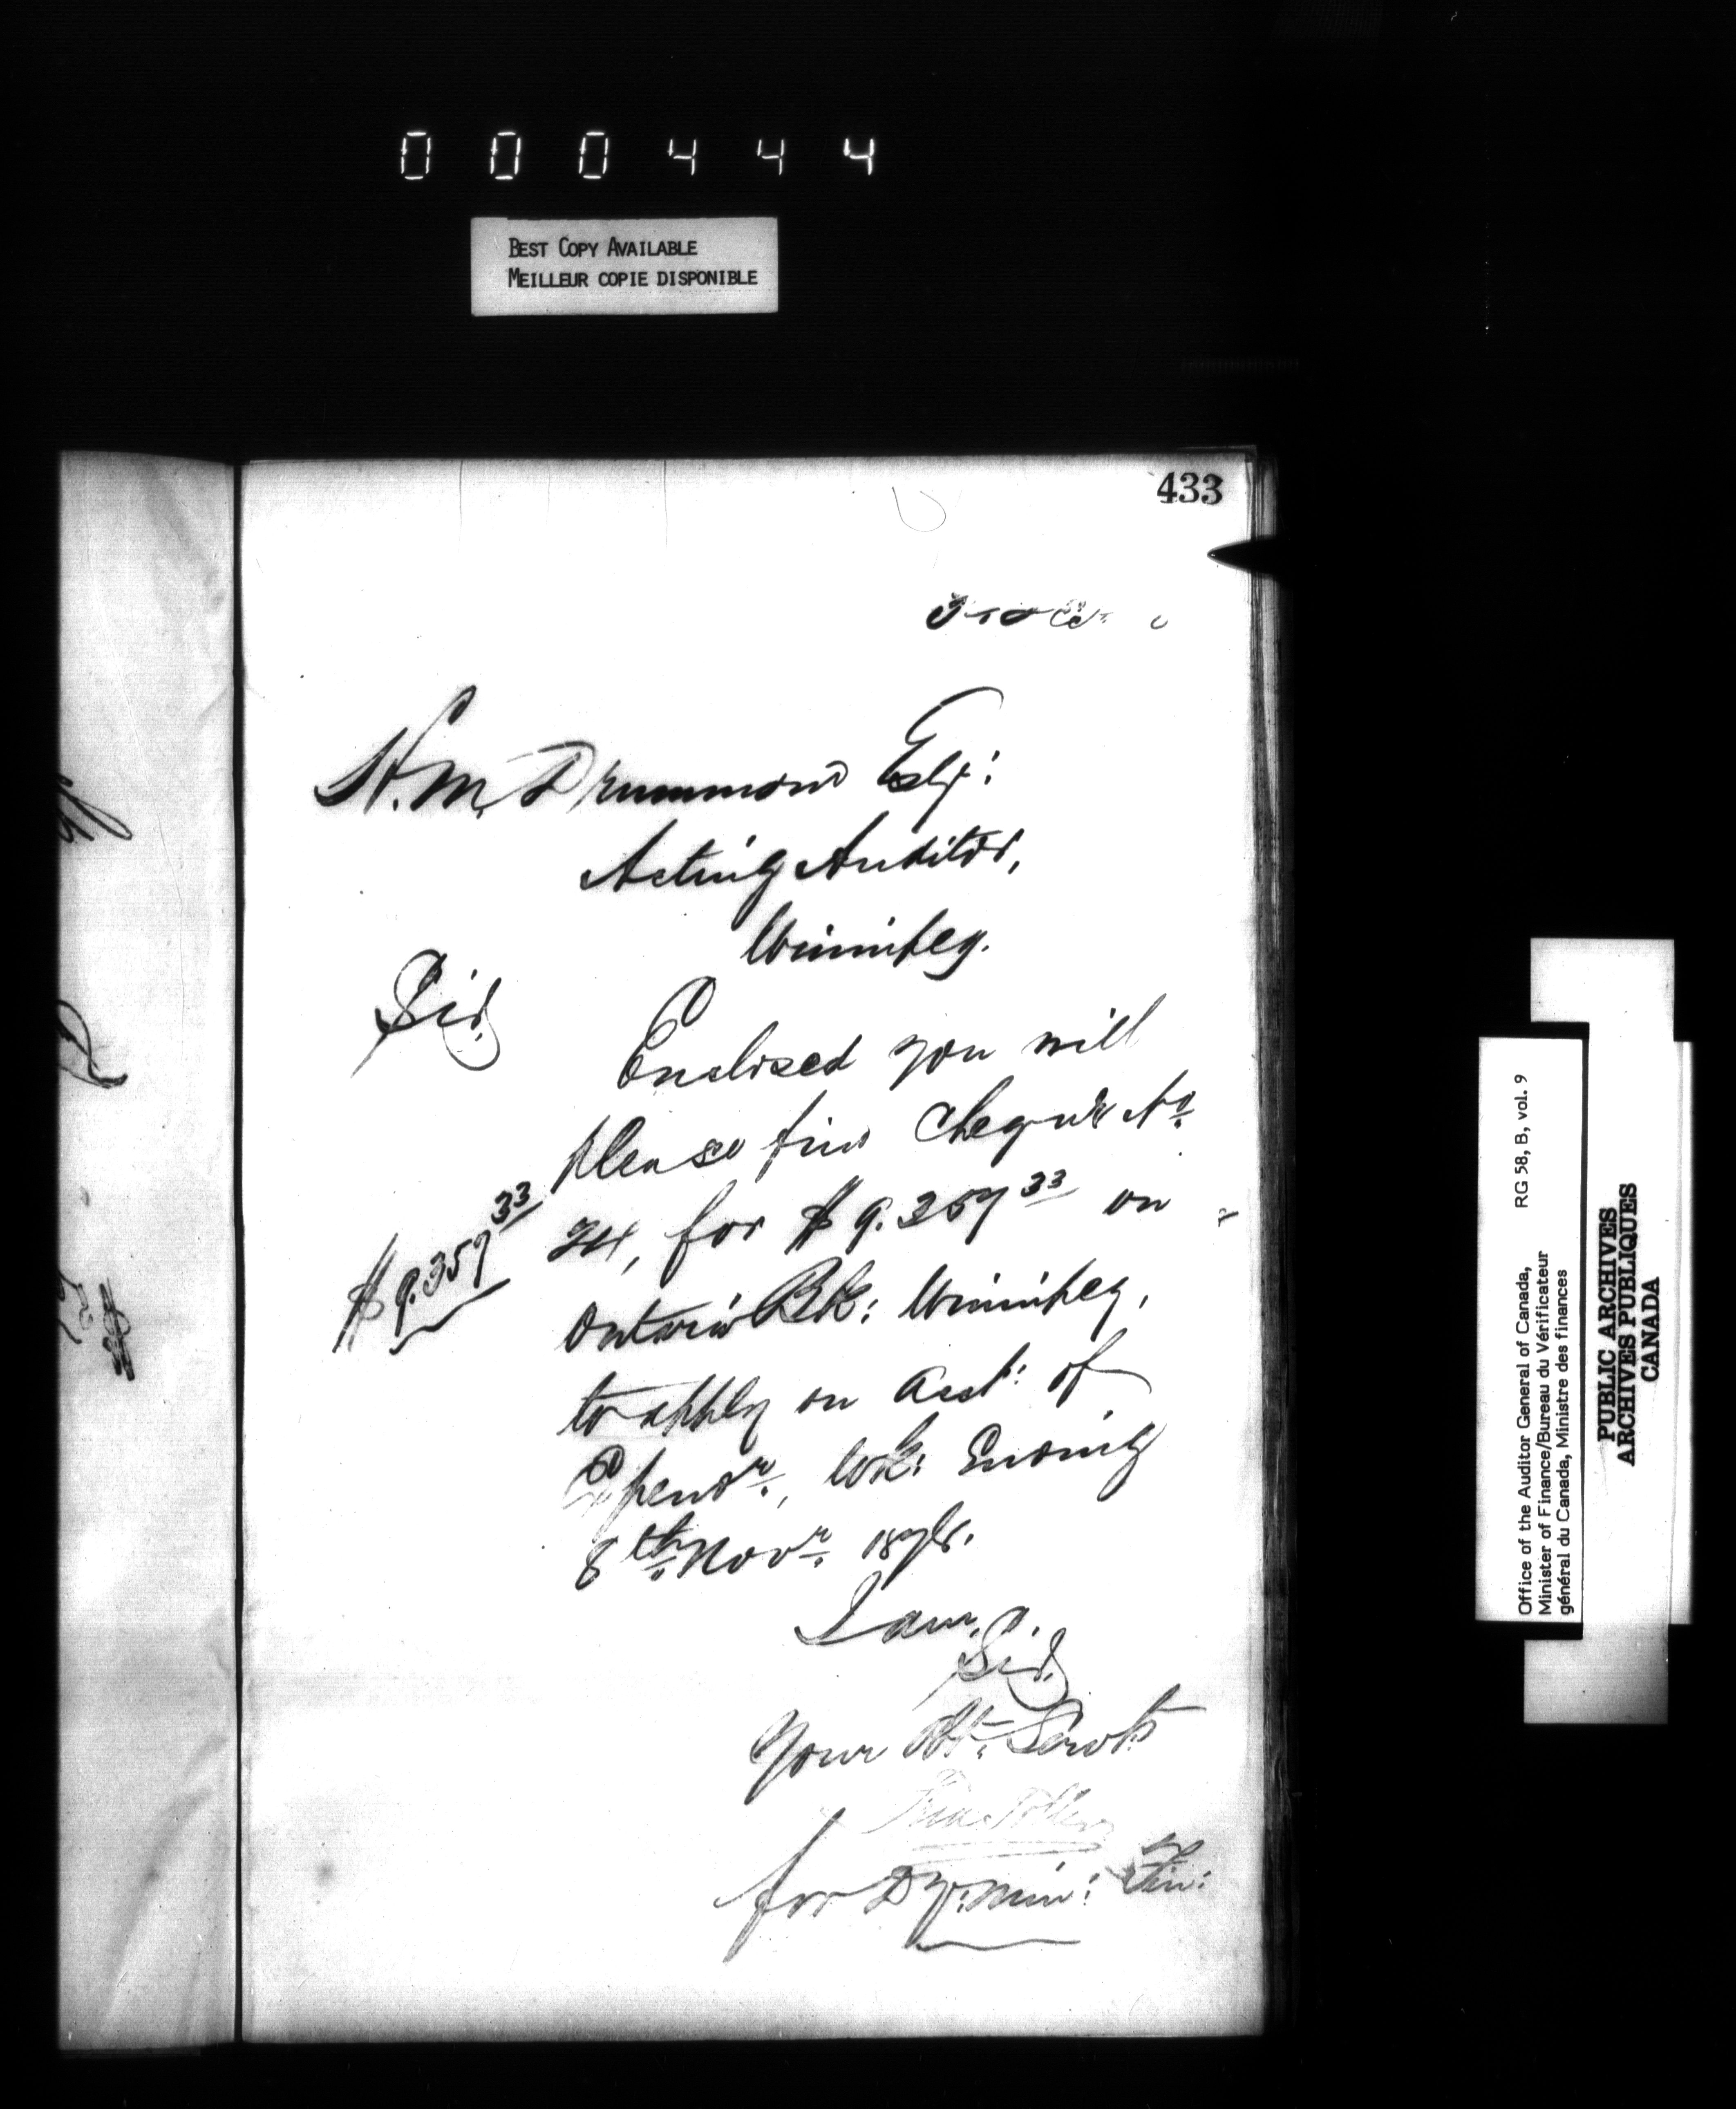 000444
BEST COPY AVAILABLE
MEILLEUR COPIE DISPONIBLE
433
H. M. Drummond Esqr:
Acting Auditor,
Winnipeg.
Sir,
Enclosed you will
please find Cheque No.
for $9.357 33 on
$9.357 33
Ontario Bk: Winnipeg,
to apply on Acct: of
Expendr., Wk: Ending
8th Novr. 187
I am,
Sir,
Your Obt. Servt
for Dy. Min: Fin:
Office of the Auditor General of Canada, RG 58, B, vol. 9
Minister of Finance/Bureau du Vérificateur
général du Canada, Ministre des finances
PUBLIC ARCHIVES
ARCHIVES PUBLIQUES
CANADA